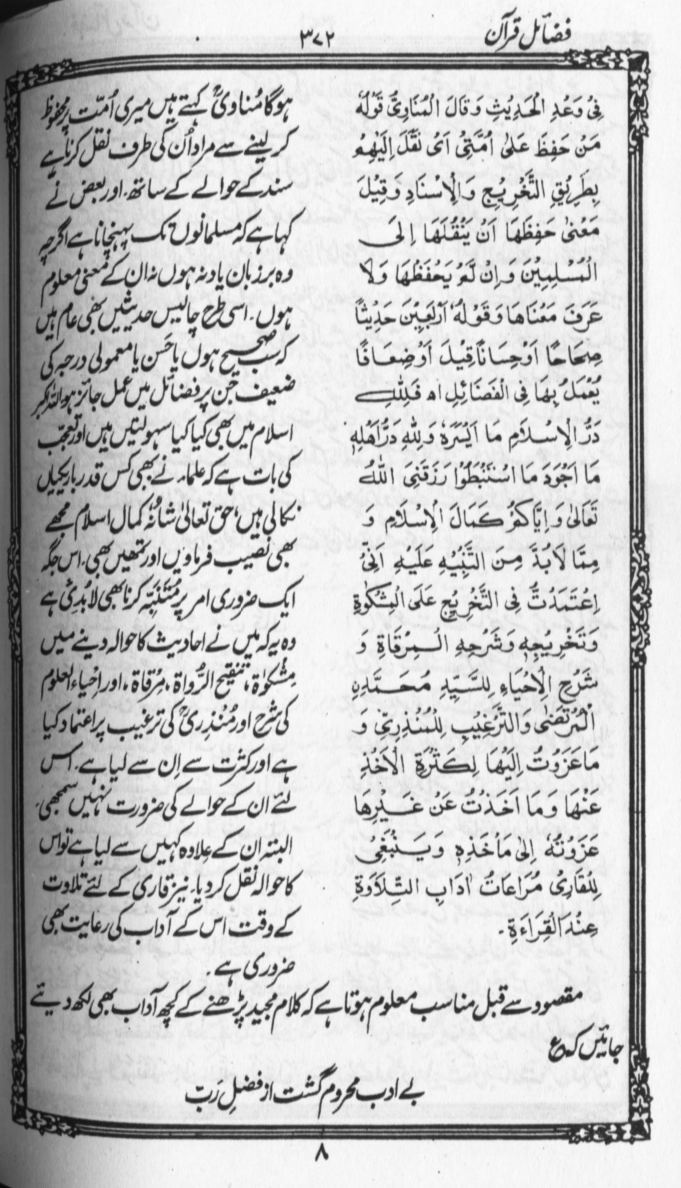 فضائل قرآن
۳۷۲
فِیْ وَعْدِ الْحَدِیْثِ وَقَالَ الْمُنَاوِیُّ قَوْلُهٗ
مَنْ حَفِظَ عَلٰی اُمَّتِیْ اَیْ نَقَلَ اِلَیْهِمْ
بِطَرِیْقِ التَّخْرِیْجِ وَالْاِسْنَادِ وَقِیْلَ
مَعْنٰی حَفِظَهَا اَنْ یَّنْقُلَهَا اِلَی
الْمُسْلِمِیْنَ وَاِنْ لَّمْ یَحْفَظْهَا وَلَا
عَرَفَ مَعْنَاهَا وَقَوْلُهٗ اَرْبَعِیْنَ حَدِیْثًا
صِحَاحًا اَوْحِسَانًا قِیْلَ اَوْضِعَافًا
یُعْمَلُ بِهَا فِی الْفَضَائِلِ اه فَلِلّٰهِ
دَرُّ الْاِسْلَامِ مَا اَیْسَرَهٗ وَلِلّٰهِ دَرُّ اَهْلِهٖ
مَا اَجْوَدَ مَا اسْتَنْبَطُوْا رَزَقَنِیَ اللّٰهُ
تَعَالٰی وَاِیَّاكُمْ كَمَالَ الْاِسْلَامِ وَ
مِمَّا لَابُدَّ مِنَ التَّنْبِیْهِ عَلَیْهِ اَنِّیْ
اِعْتَمَدْتُ فِی التَّخْرِیْجِ عَلَی الْمِشْكٰوةِ
وَتَخْرِیْجِهٖ وَشَرْحِهِ الْمِرْقَاةِ وَ
شَرْحِ الْاِحْیَاءِ لِلسَّیِّدِ مُحَمَّدِنِ
الْمُرْتَضٰی وَالتَّرْغِیْبِ لِلْمُنْذِرِیِّ وَ
مَاعَزَوْتُ اِلَیْهَا لِكَثْرَةِ الْاَخْذِ
عَنْهَا وَمَا اَخَذْتُ عَنْ غَیْرِهَا
عَزَوْتُهٗ اِلٰی مَاٰخِذِهٖ وَیَنْبَغِیْ
لِلْقَارِیْ مُرَاعَاتُ اٰدَابِ التِّلَاوَةِ
عِنْدَ الْقِرَاءَةِ۔
ہوگا مُناویؒ کہتے ہیں میری اُمّت پر محفوظ
کر لینے سے مراد اُن کی طرف نقل کرنا ہے
سند کے حوالے کے ساتھ، اور بعض نے
کہا ہے کہ مسلمانوں تک پہنچانا ہے اگرچہ
وہ بر زبان یاد نہ ہوں نہ ان کے معنی معلوم
ہوں۔ اسی طرح چالیس حدیثیں بھی عام ہیں
کہ سب صحیح ہوں یا حَسن یا معمولی درجہ کی
ضعیف جن پر فضائل میں عمل جائز ہو اللہ اکبر
اسلام میں بھی کیا کیا سہولتیں ہیں اور تعجّب
کی بات ہے کہ علماء نے بھی کس قدر باریکیاں
نکالی ہیں، حق تعالیٰ شانہٗ کمال اسلام مجھے
بھی نصیب فرماویں اور تمھیں بھی۔ اس جگہ
ایک ضروری امر پر مُتنَبّہ کرنا بھی لابُدی ہے
وہ یہ کہ میں نے احادیث کا حوالہ دینے میں
مشکوٰۃ، تنقیح الرُّواۃ، مِرقاۃ، اور اِحیاء العلوم
کی شرح اور مُنذِریؒ کی ترغیب پر اعتماد کیا
ہے اور کثرت سے اِن سے لیا ہے۔ اس
لئے ان کے حوالے کی ضرورت نہیں سمجھی۔
البتہ ان کے علاوہ کہیں سے لیا ہے تو اس
کا حوالہ نقل کر دیا۔ نیز قاری کے لئے تلاوت
کے وقت اس کے آداب کی رعایت بھی
ضروری ہے۔
مقصود سے قبل مناسب معلوم ہوتا ہے کہ کلام مجید پڑھنے کے کچھ آداب بھی لکھ دیئے
جائیں کہ ؏
بے ادب محروم گشت از فضلِ رَبّ
۸